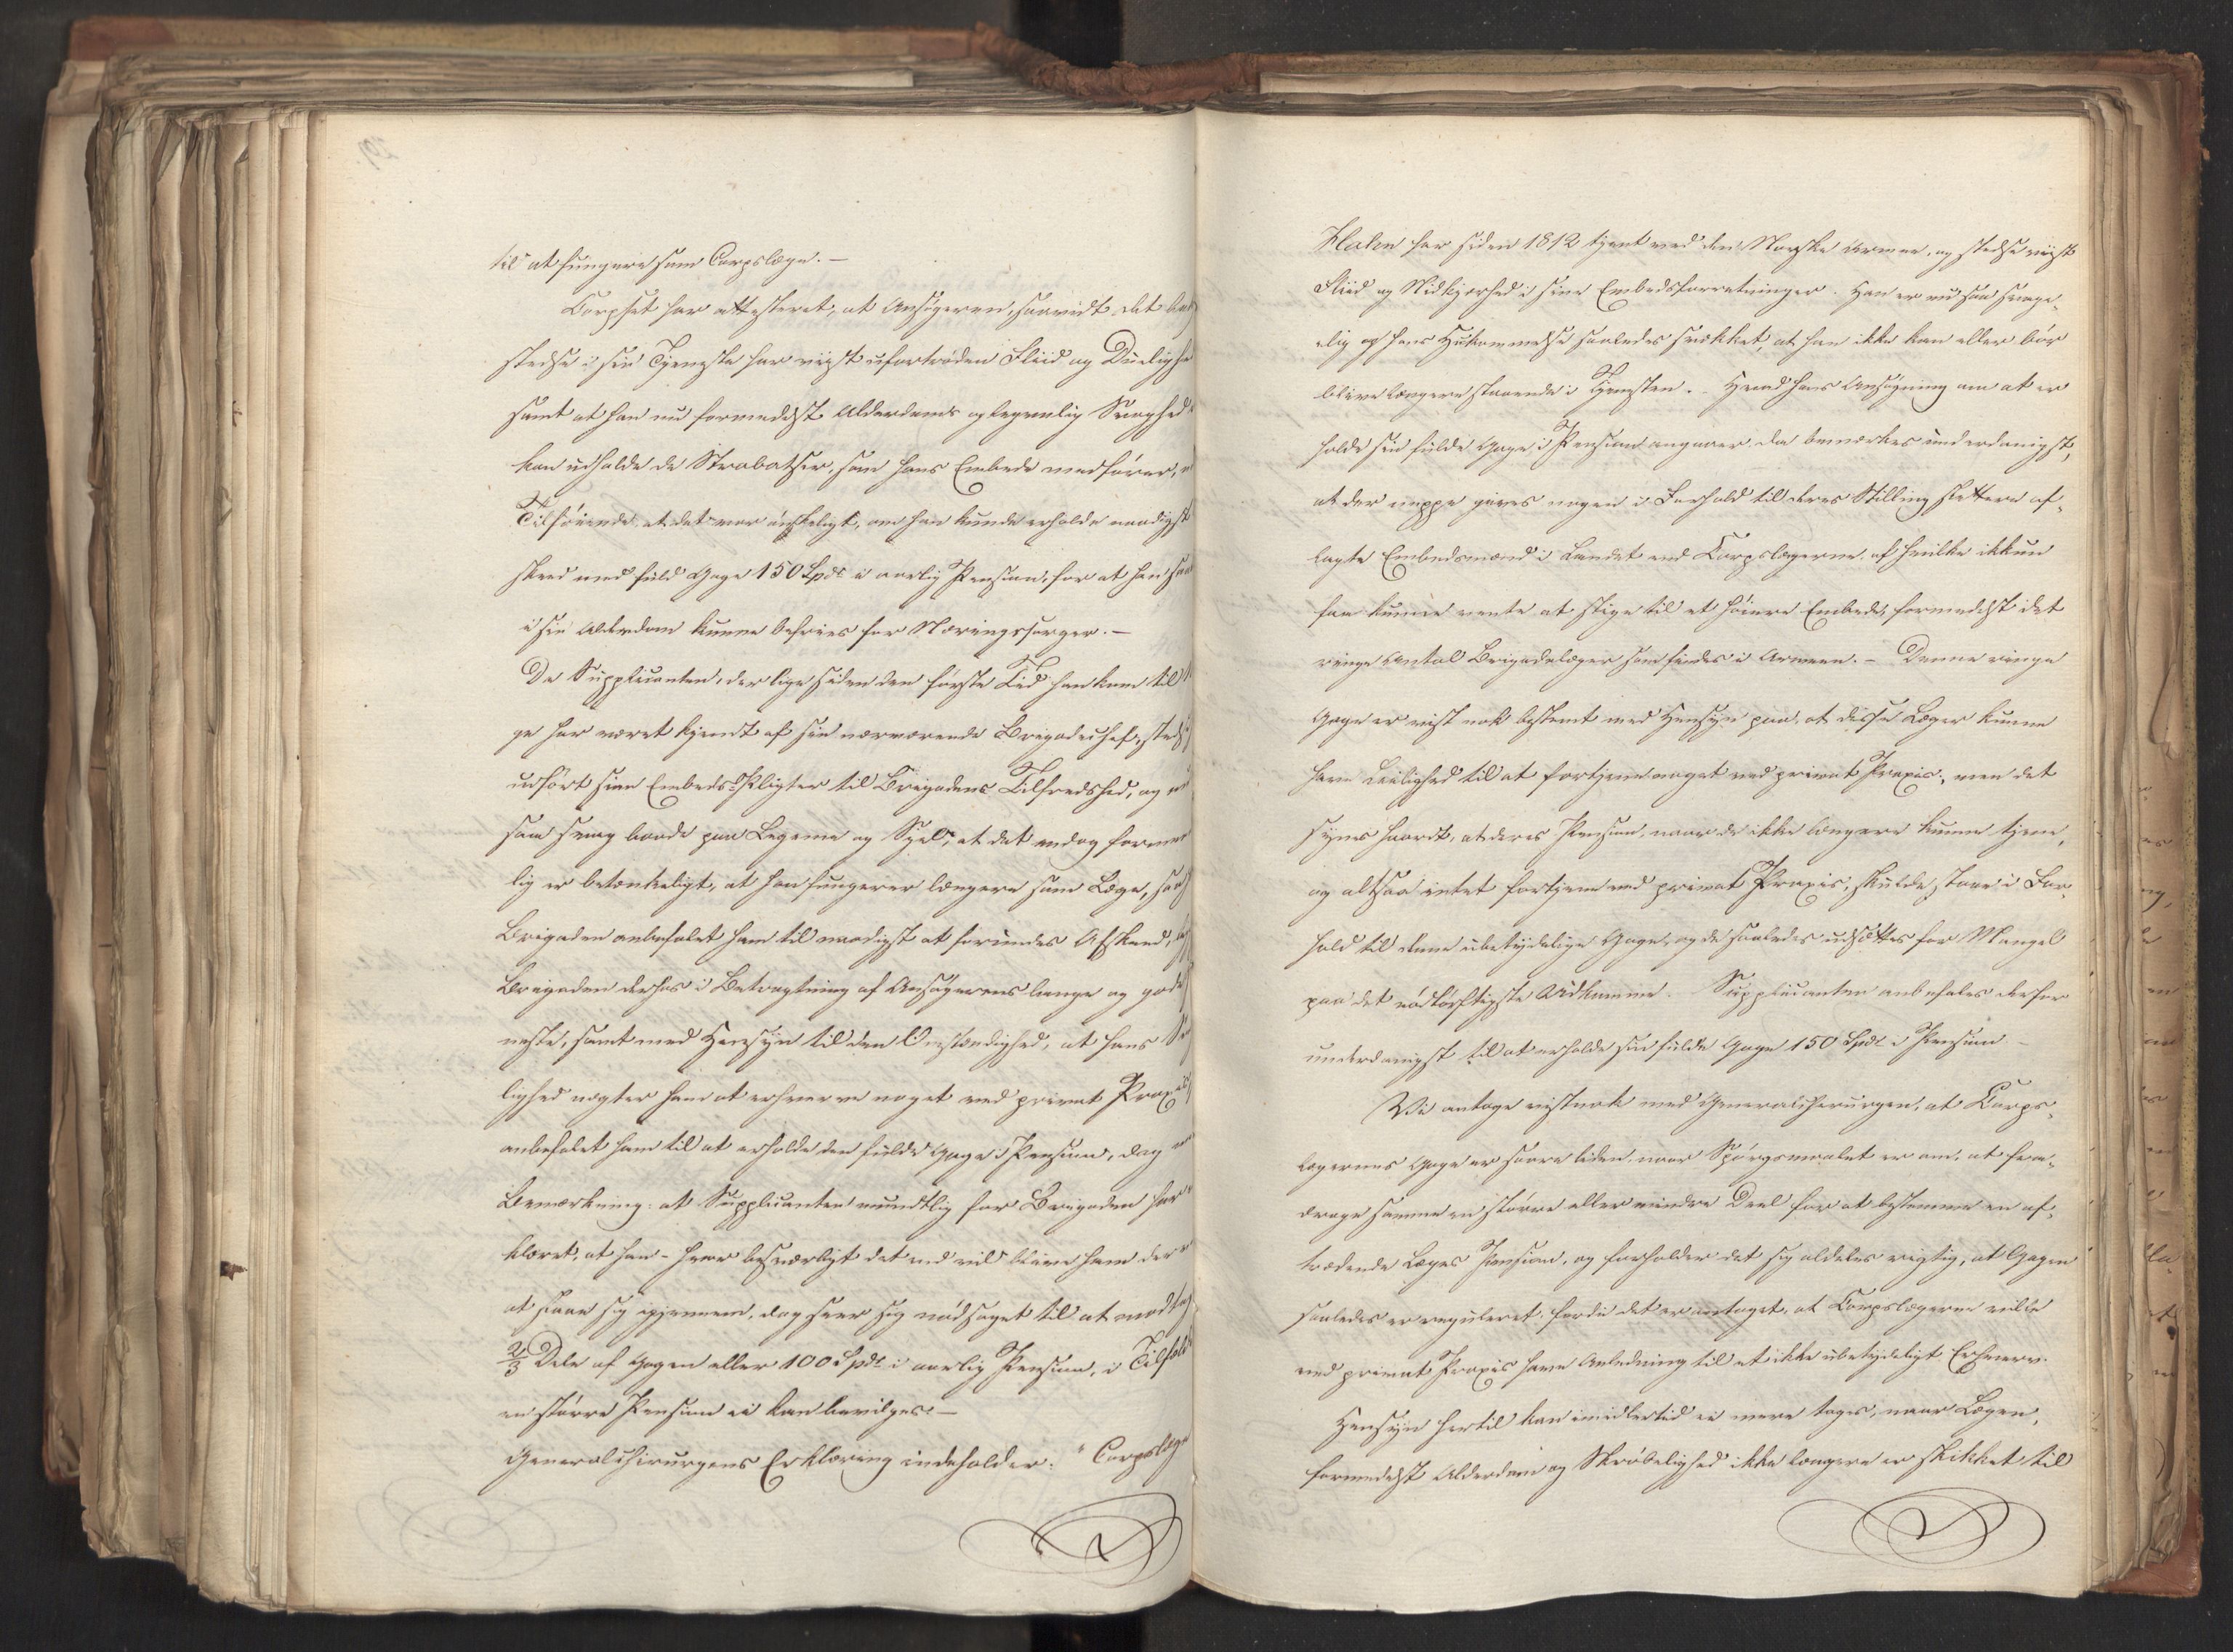 til at fungere som Corpslæge. –
Corpset har attesteret, at Ansøgeren, saavidt det
stedse i sin Tjeneste har viist ufortrøden Fliid og Duelighe
samt at han nu formedelst Alderdoms og legemlig Svaghed
kan udholde de Strabatser, som hans Embede medfører,
Tilføiende at det var ønskeligt, om han kunde erholde naadigst
skeed med fuld Gage 150 Spdl i aarlig Pension, for at han saa
i sin Alderdom kunne befries for Næringssorger. –
Da Supplicanten, der lige siden den første Tid han kom til
ge har været kjendt af sin nærværende Brigadechef, steds
udført sine Embeds-Pligter til Brigadens Tilfredshed, og nu
saa svag baade paa Legeme og Sjel, at det endog formee
lig er betænkeligt, at han fungerer længere som Læge, saa
Brigaden anbefalet ham til naadigst at forundes Afskeed,
Brigaden derhos i Betragtning af Ansøgerens lange og gode
neste, samt med Hensyn til den Omstændighed, at hans
lighed nægter ham at erhverve noget ved privat Praxis
anbefalet ham til at erholde den fulde Gage i Pension, dog
Bemærkning: at Supplicanten mundtlig for Brigaden har
klæret, at han – hvor besværligt det end vil blive ham der
at slaae sig igjennem, dog seer sig nødsaget til at modtag
2/3 Dele af Gagen eller 100 Spdl i aarlig Pension, i Tilfælde
en større Pension ei kan bevilges. –
Generalchirurgens Erklæring indeholder: "Corpslæge
Hahn har siden 1812 tjent ved den Norske Armee, og stedse viist
Fliid og Nidkjerhed i sine Embedsforretninger. Han er nu saa svage-
lig og hans Hukommelse saaledes svækket, at han ikke kan eller bør
blive længere staaende i Tjenesten. – Hvad hans Ansøgning om at er
holde sin fulde Gage i Pension angaaer da bemærkes underdanigst,
at der neppe gives nogen i Forhold til deres Stilling slettere af-
lagte Embedsmænd i Landet end Corpslægerne, af hvilke ikkun
faa kunne vente at stige til et høiere Embede, formedelst det
ringe Antal Brigadelæger som findes i Armeen. – Denne ringe
Gage er vist nok bestemt med Hensyn paa, at disse Læger kunne
have Leilighed til at fortjene noget ved privat Praxis, men det
synes haardt, at deres Pension, naar de ikke længere kunne tjene,
og altsaa intet fortjene ved privat Praxis, skulde staae i For-
hold til denne ubetydelige Gage, og de saaledes udsættes for Mangel
paa det nødtørftigste Udkomme. Supplicanten anbefales derfor
underdanigst til at erholde sin fulde Gage 150 Spdl i Pension –
Vi antage vistnok med Generalchirurgen, at Corps-
lægernes Gage er saare liden, naar Spørgsmaalet er om, at fra-
drage samme en større eller mindre Deel for at bestemme en af-
trædende Læges Pension, og forholder det sig aldeles rigtig, at Gagen
saaledes er reguleret, fordi det er antaget, at Corpslægerne ville
ved privat Praxis have Anledning til et ikke ubetydeligt Erhverv.
Hensyn hertil kan imidlertid ei mere tages, naar Lægen,
formedelst Alderdom og Skrøbelighed ikke længere er skikket til